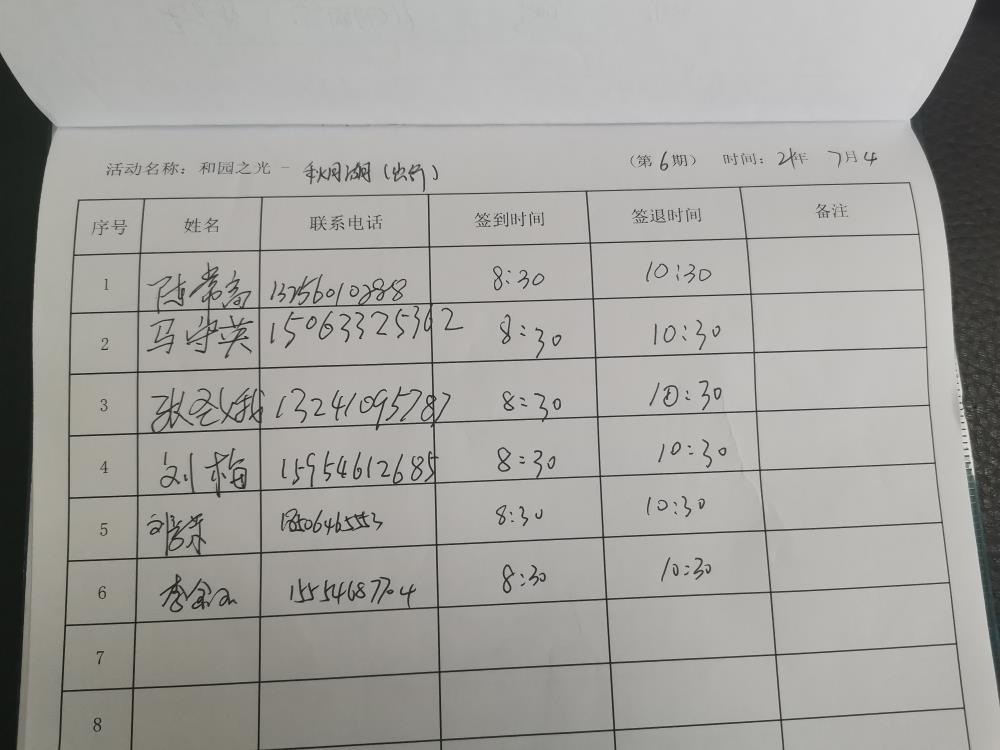 活动名称：和园之光 - 秋月湖（出行） （第6期） 时间：21年 7月4
序号 姓名 联系电话 签到时间 签退时间 备注
1 陈常高 13256010288 8:30 10:30
2 马守英 15063325362 8:30 10:30
3 张圣娥 13241095787 8:30 10:30
4 刘梅 15954612685 8:30 10:30
5 8:30 10:30
6 15554687704 8:30 10:30
7
8